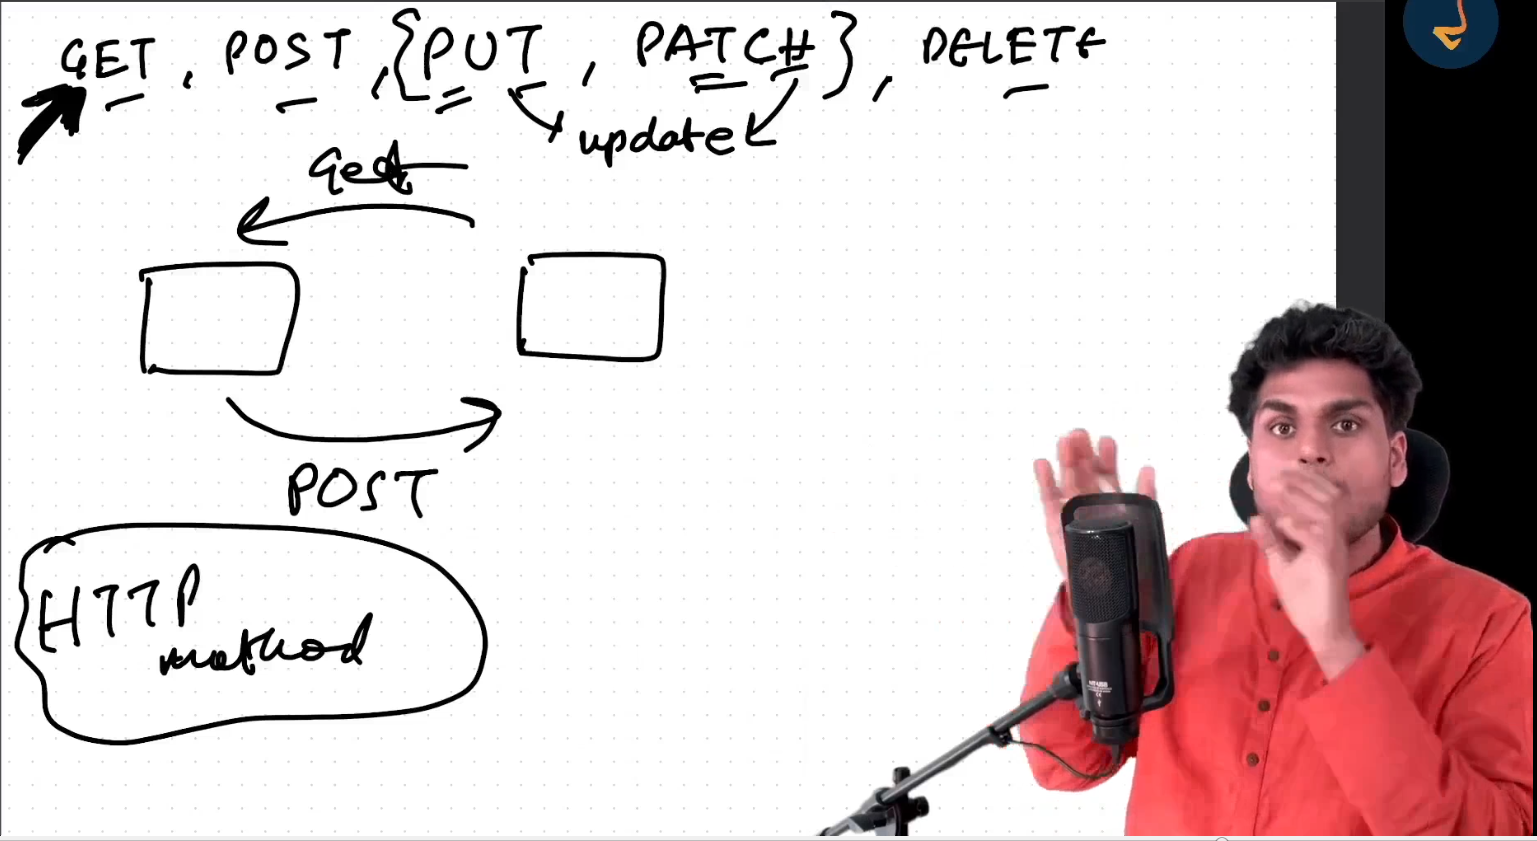 GET, POST, {PUT, PATCH}, DELETE
update
Get
POST
HTTP
method